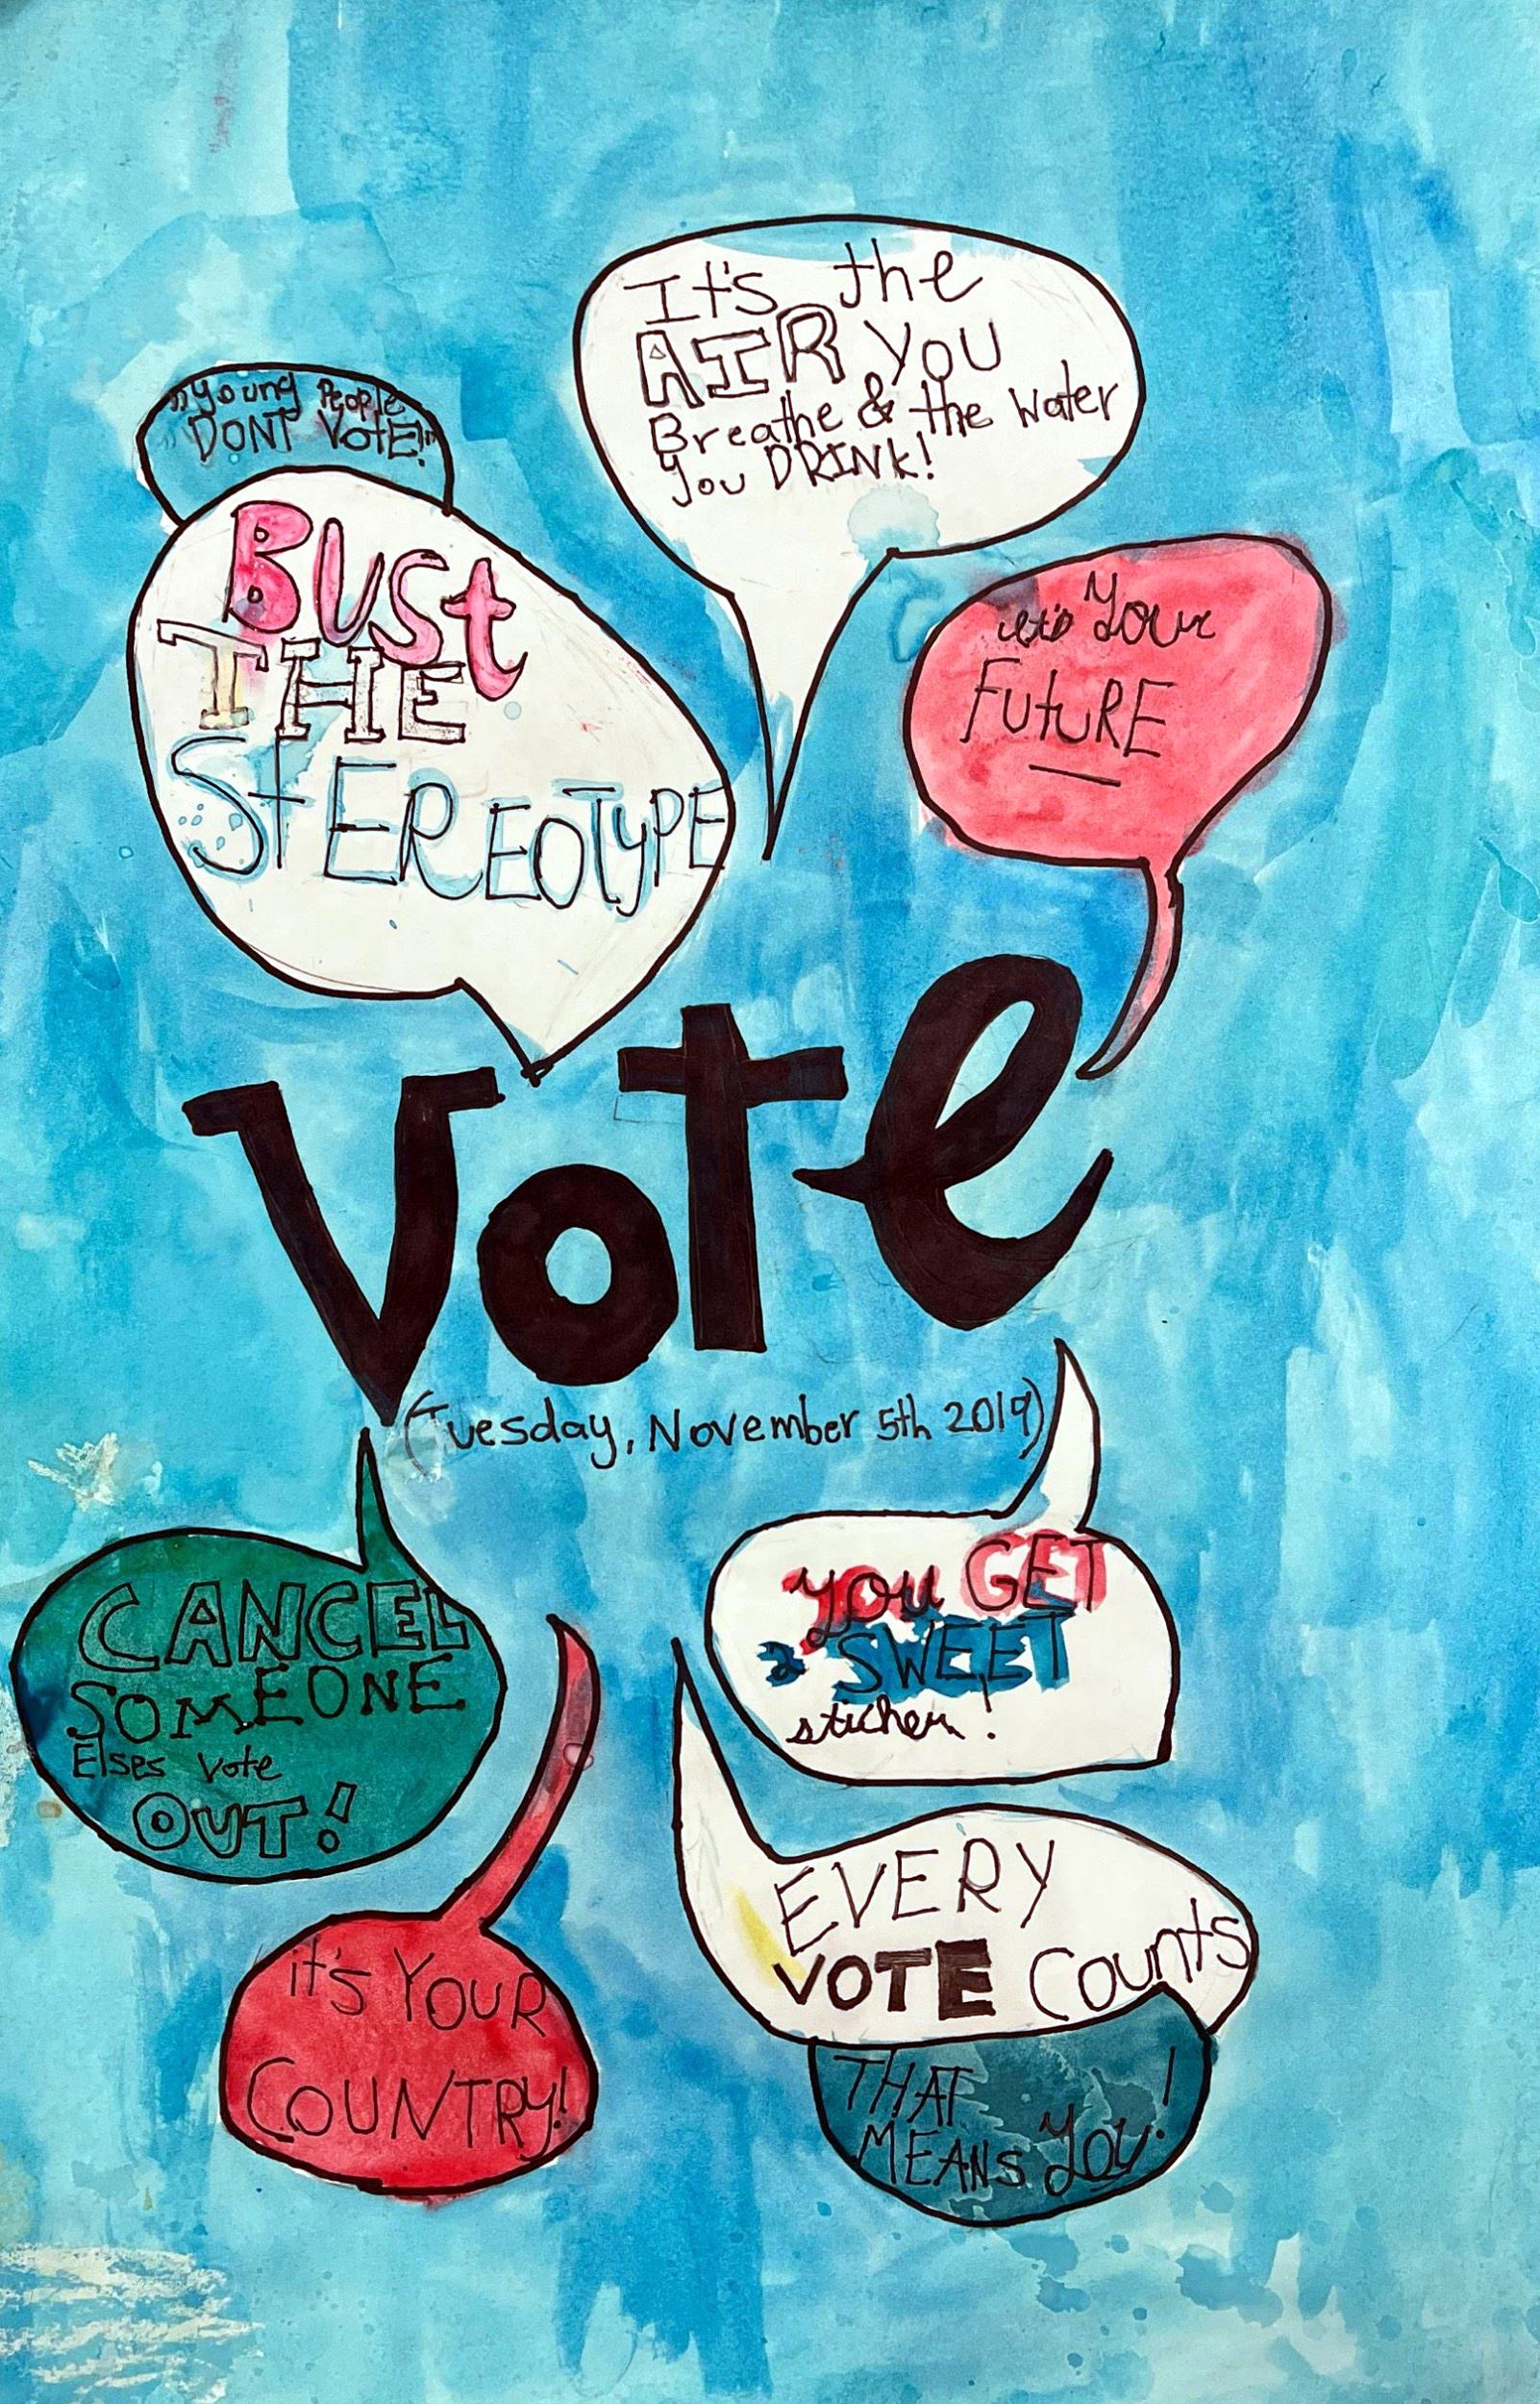 "Young People
DONT VOTE!"
BUST
THE
STEREOTYPE
It's the
AIR you
Breathe & the Water
you DRINK!
it's Your
FUtURE
Vote
(Tuesday, November 5th 2019)
CANCEL
SOMEONE
Elses vote
OUT!
you GET
a SWEET
sticker!
it's YOUR
COUNTRY!
EVERY
VOTE Counts
THAT
MEANS YOU!